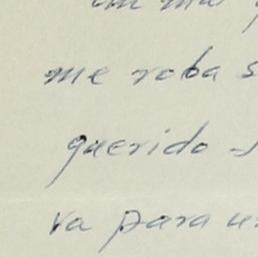 me roba s
querido
va para un